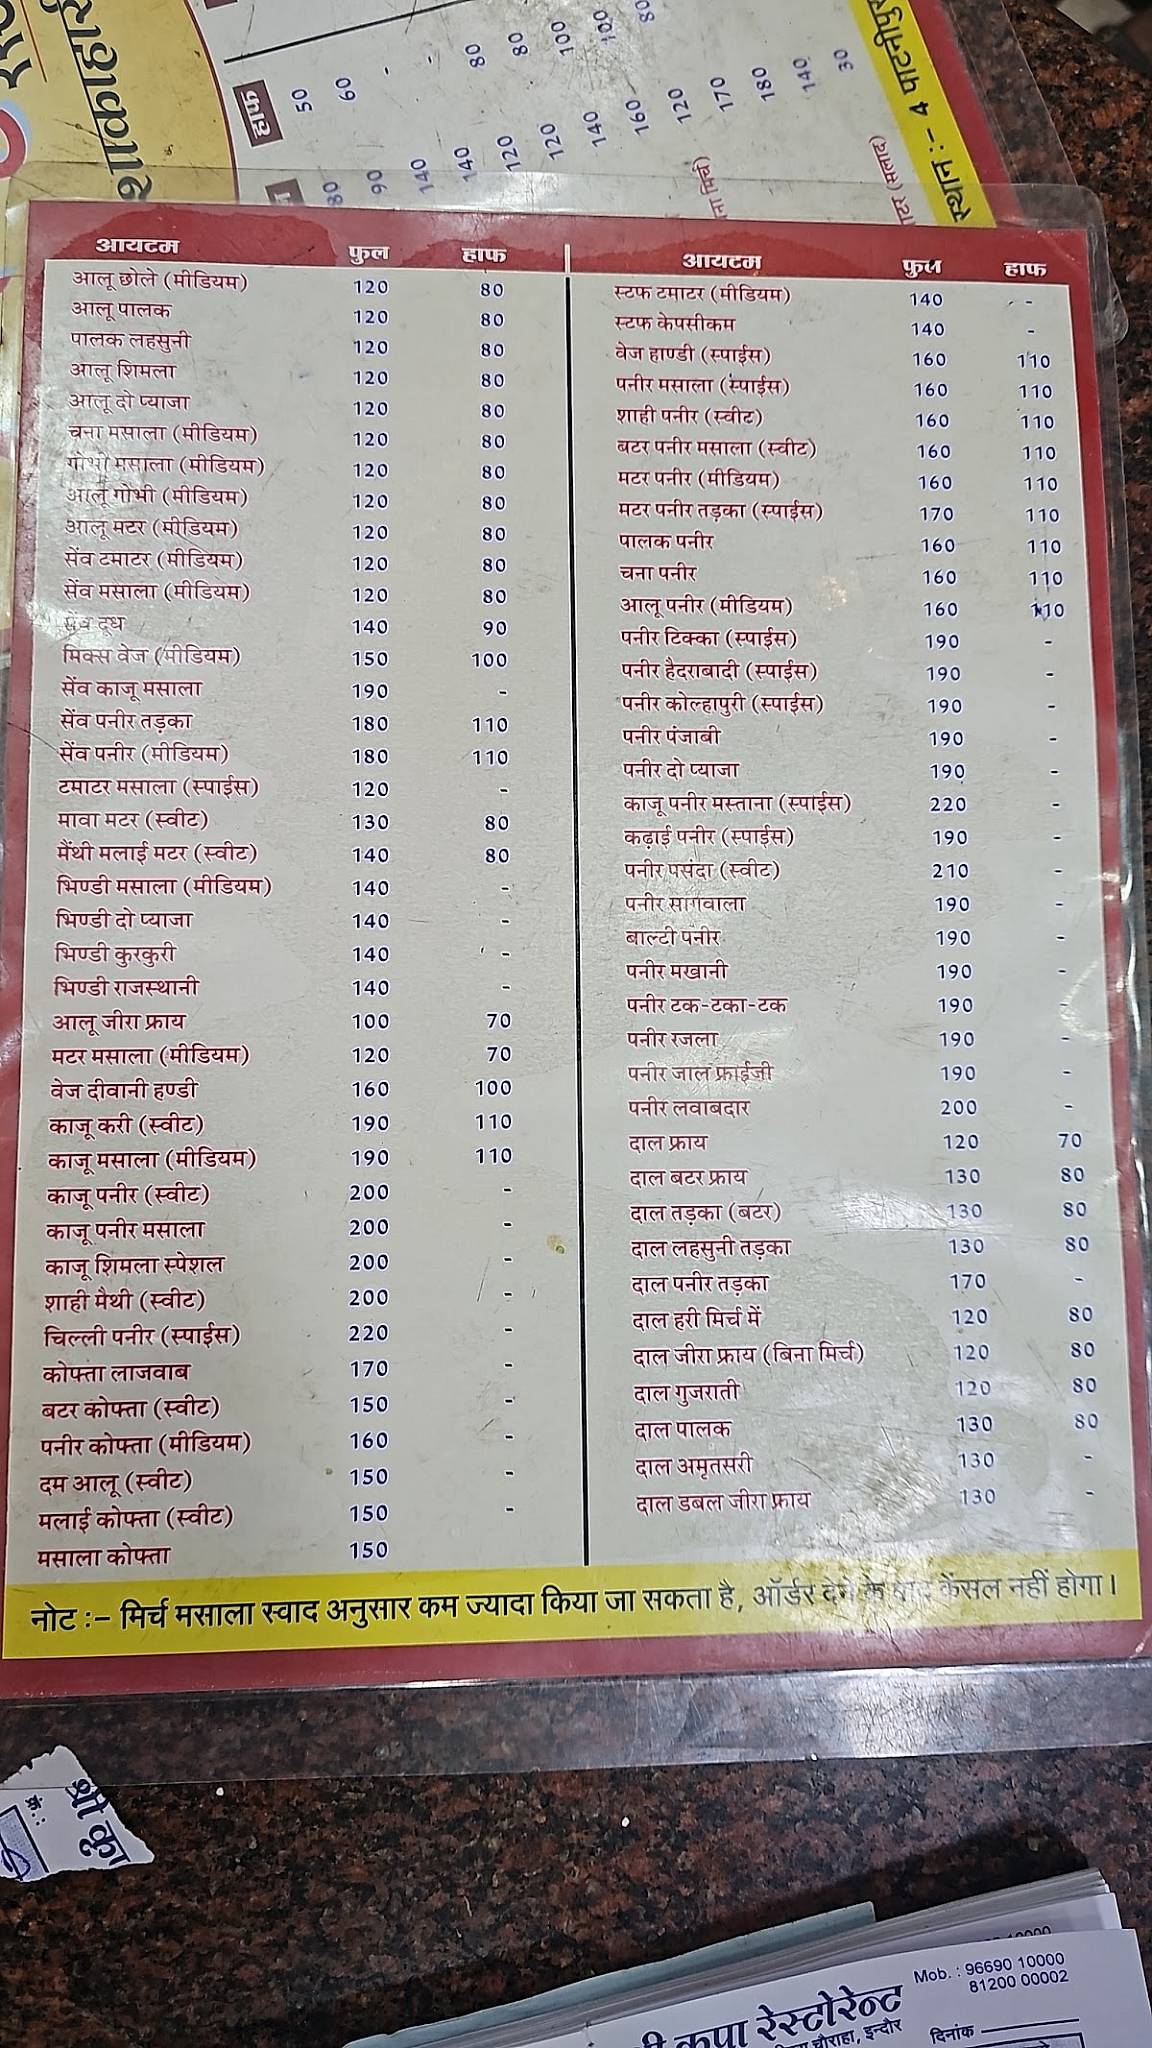 शाकाहारी
हाफ
50
60
-
-
80
80
100
100
80
80
90
140
140
120
120
140
160
120
170
180
140
30
स्थान :- 4 पाटनीपु
आयटम फुल हाफ
आलू छोले (मीडियम) 120 80
आलू पालक 120 80
पालक लहसुनी 120 80
आलू शिमला 120 80
आलू दो प्याजा 120 80
चना मसाला (मीडियम) 120 80
गोभी मसाला (मीडियम) 120 80
आलू गोभी (मीडियम) 120 80
आलू मटर (मीडियम) 120 80
सेंव टमाटर (मीडियम) 120 80
सेंव मसाला (मीडियम) 120 80
सेंव दूध 140 90
मिक्स वेज (मीडियम) 150 100
सेंव काजू मसाला 190 -
सेंव पनीर तड़का 180 110
सेंव पनीर (मीडियम) 180 110
टमाटर मसाला (स्पाईस) 120 -
मावा मटर (स्वीट) 130 80
मैंथी मलाई मटर (स्वीट) 140 80
भिण्डी मसाला (मीडियम) 140 -
भिण्डी दो प्याजा 140 -
भिण्डी कुरकुरी 140 -
भिण्डी राजस्थानी 140 -
आलू जीरा फ्राय 100 70
मटर मसाला (मीडियम) 120 70
वेज दीवानी हण्डी 160 100
काजू करी (स्वीट) 190 110
काजू मसाला (मीडियम) 190 110
काजू पनीर (स्वीट) 200 -
काजू पनीर मसाला 200 -
काजू शिमला स्पेशल 200 -
शाही मैथी (स्वीट) 200 -
चिल्ली पनीर (स्पाईस) 220 -
कोफ्ता लाजवाब 170 -
बटर कोफ्ता (स्वीट) 150 -
पनीर कोफ्ता (मीडियम) 160 -
दम आलू (स्वीट) 150 -
मलाई कोफ्ता (स्वीट) 150 -
मसाला कोफ्ता 150
आयटम फुल हाफ
स्टफ टमाटर (मीडियम) 140 -
स्टफ केपसीकम 140 -
वेज हाण्डी (स्पाईस) 160 110
पनीर मसाला (स्पाईस) 160 110
शाही पनीर (स्वीट) 160 110
बटर पनीर मसाला (स्वीट) 160 110
मटर पनीर (मीडियम) 160 110
मटर पनीर तड़का (स्पाईस) 170 110
पालक पनीर 160 110
चना पनीर 160 110
आलू पनीर (मीडियम) 160 110
पनीर टिक्का (स्पाईस) 190 -
पनीर हैदराबादी (स्पाईस) 190 -
पनीर कोल्हापुरी (स्पाईस) 190 -
पनीर पंजाबी 190 -
पनीर दो प्याजा 190 -
काजू पनीर मस्ताना (स्पाईस) 220 -
कढ़ाई पनीर (स्पाईस) 190 -
पनीर पसंदा (स्वीट) 210 -
पनीर सागवाला 190 -
बाल्टी पनीर 190 -
पनीर मखानी 190 -
पनीर टक-टका-टक 190 -
पनीर रजला 190 -
पनीर जाल फ्राईजी 190 -
पनीर लवाबदार 200 -
दाल फ्राय 120 70
दाल बटर फ्राय 130 80
दाल तड़का (बटर) 130 80
दाल लहसुनी तड़का 130 80
दाल पनीर तड़का 170 -
दाल हरी मिर्च में 120 80
दाल जीरा फ्राय (बिना मिर्च) 120 80
दाल गुजराती 120 80
दाल पालक 130 80
दाल अमृतसरी 130 -
दाल डबल जीरा फ्राय 130 -
नोट :- मिर्च मसाला स्वाद अनुसार कम ज्यादा किया जा सकता है, ऑर्डर देने के बाद केंसल नहीं होगा।
श्री कृ
क्रं.:
Mob. : 96690 10000
81200 00002
कृपा रेस्टोरेन्ट
चौराहा, इन्दौर
दिनांक